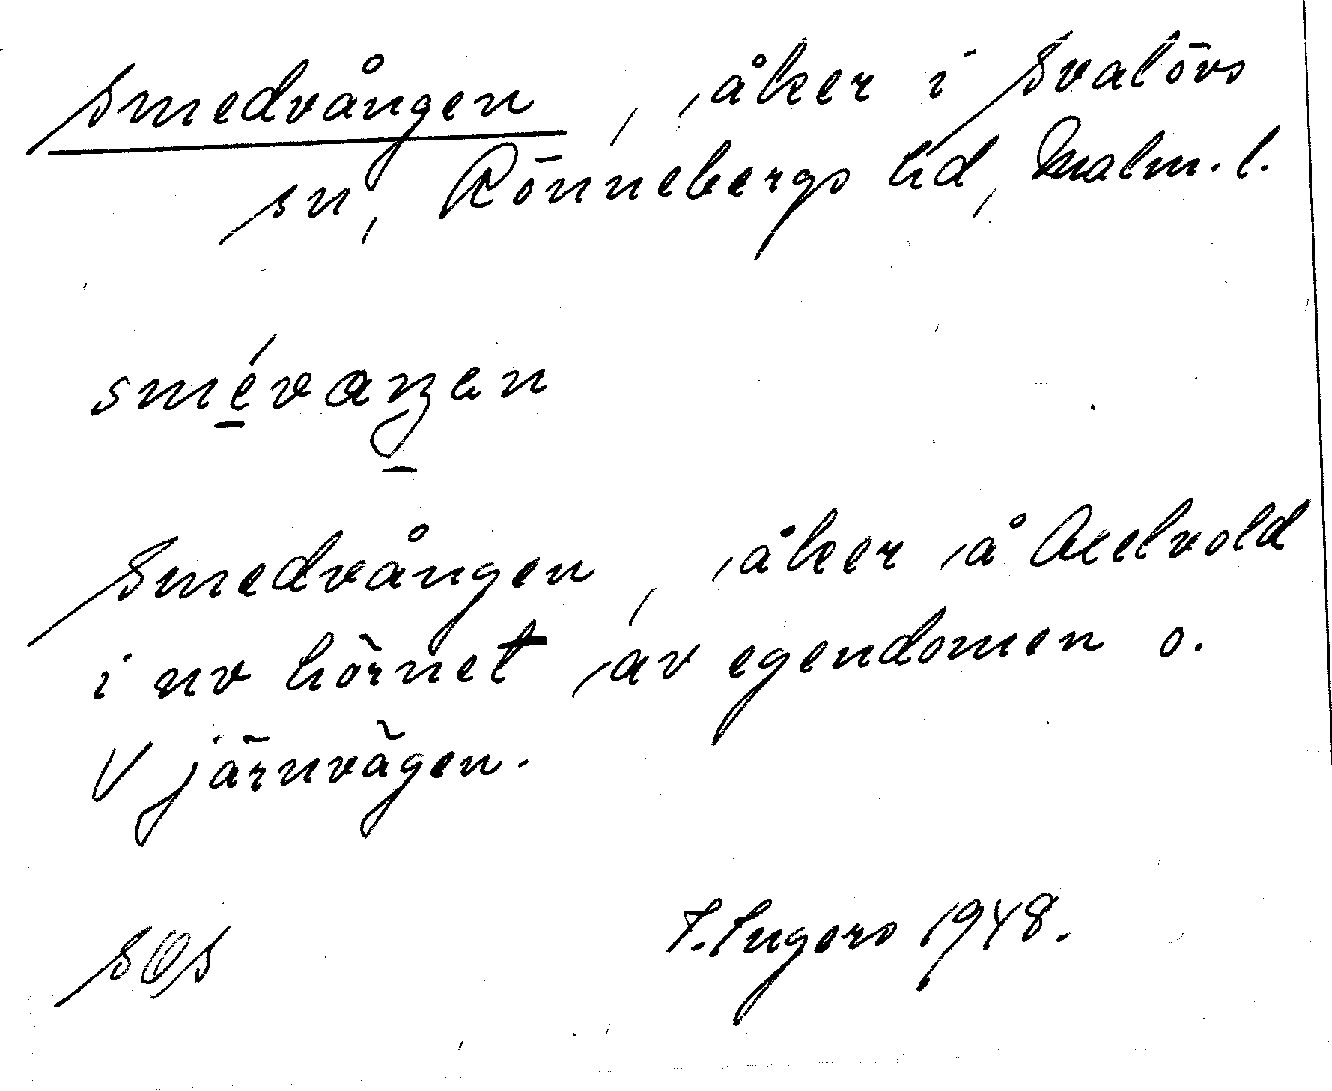 Smedvången, åker i Svalövs
sn, Rönnebergs hd, Malm. l.
smévaŋen
Smedvången, åker å Axelvold
i nv hörnet av egendomen o.
V järnvägen.
SOS
F. Ingers 1948.